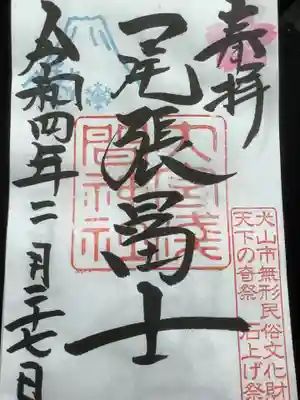 奉拝
尾張冨士
大宮浅間神社
令和四年二月二十七日
犬山市無形民俗文化財
天下の奇祭 石上げ祭